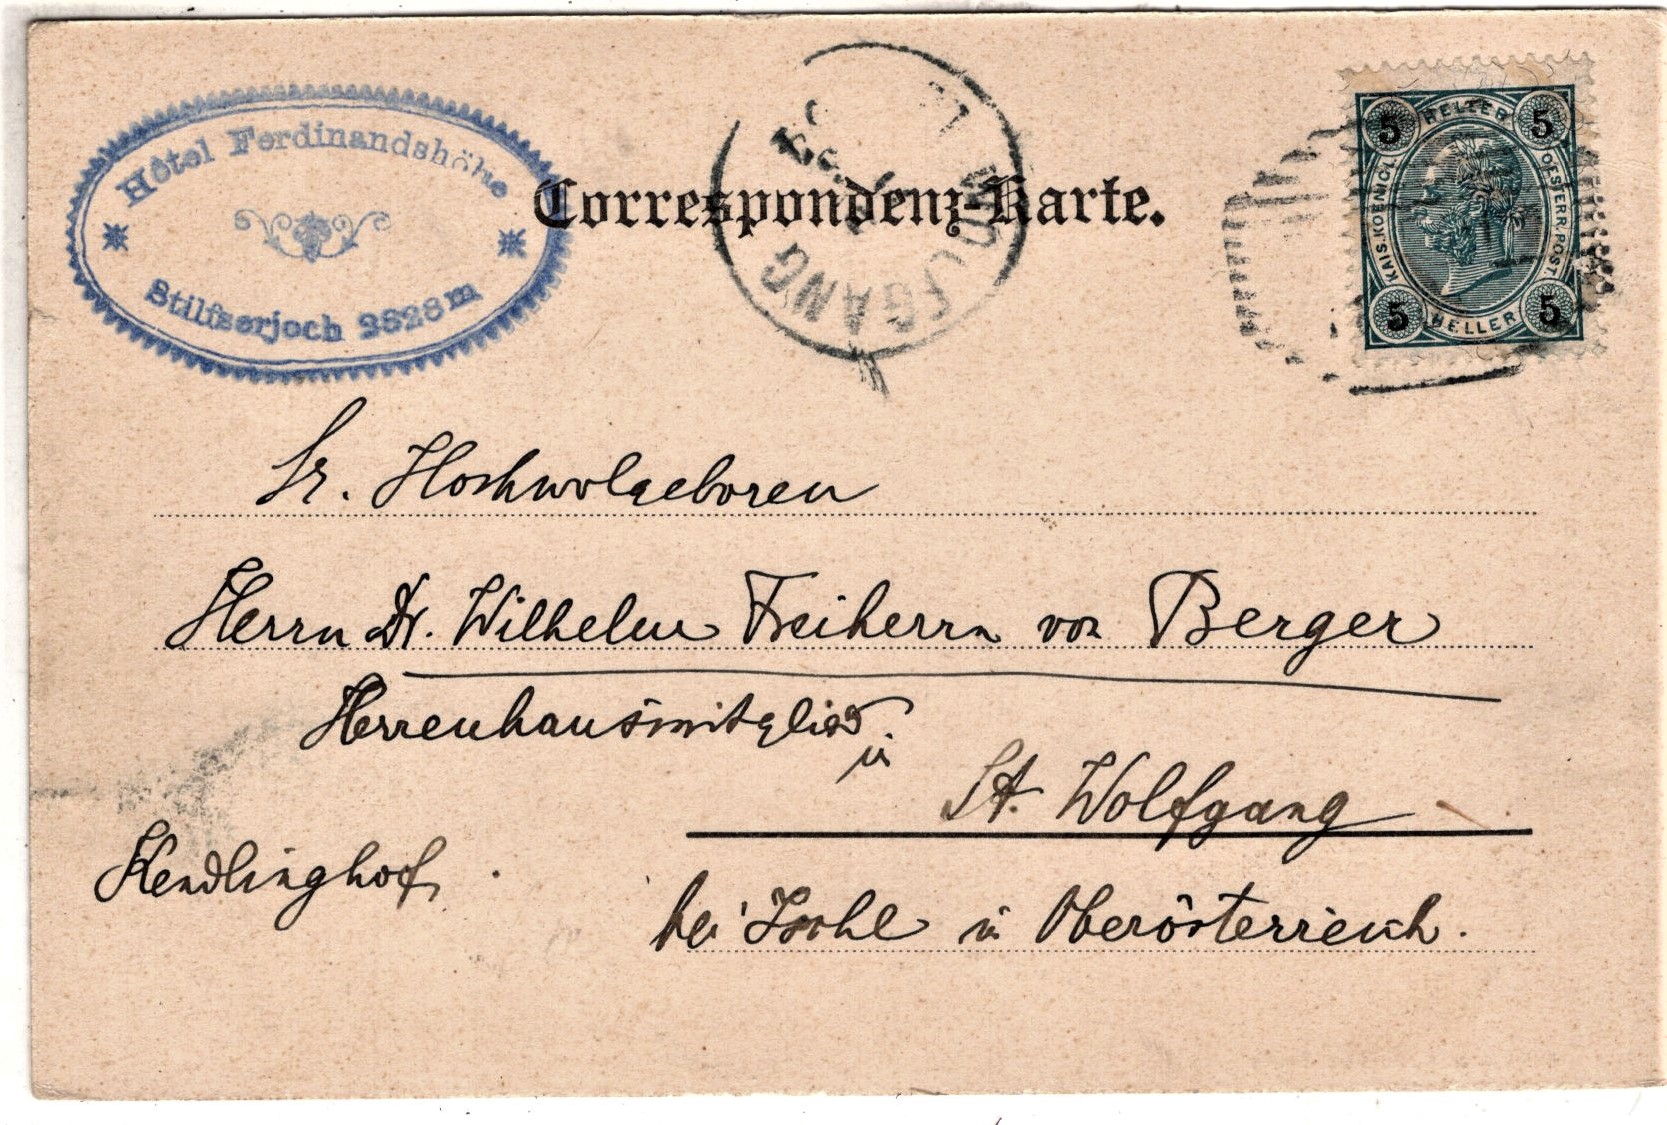 Hôtel Ferdinandshöhe
Stilfserjoch 2828m
Correspondenz-Karte.
ST WOLFGANG
5 HELLER 5
KAIS. KOENIGL.
OESTERR. POST.
5 HELLER 5
Sr. Hochwolgeboren
Herrn Dr. Wilhelm Freiherrn von Berger
Herrenhausmitglied
in
St. Wolfgang
Kendlinghof
bei Ischl in Oberösterreich.